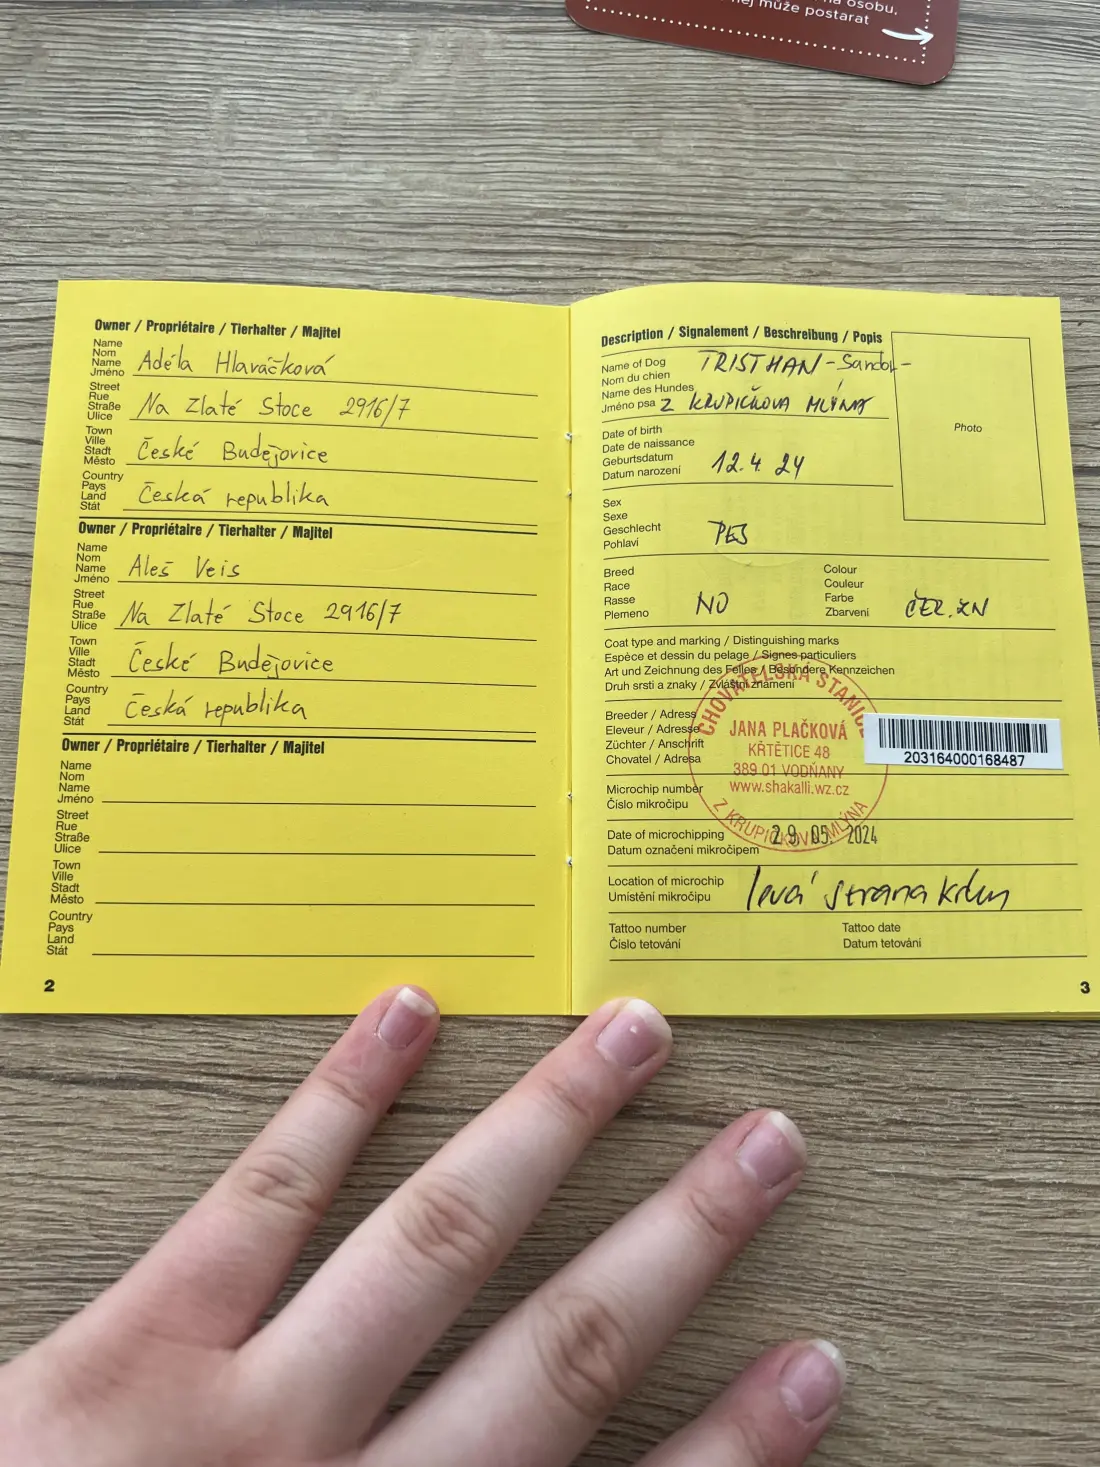 osobu,
může postarat
Owner / Propriétaire / Tierhalter / Majitel
Name
Nom
Name
Jméno Adéla Hlaváčková
Street
Rue
Straße
Ulice Na Zlaté Stoce 2916/7
Town
Ville
Stadt
Město České Budějovice
Country
Pays
Land
Stát Česká republika
Owner / Propriétaire / Tierhalter / Majitel
Name
Nom
Name
Jméno Aleš Veis
Street
Rue
Straße
Ulice Na Zlaté Stoce 2916/7
Town
Ville
Stadt
Město České Budějovice
Country
Pays
Land
Stát Česká republika
Owner / Propriétaire / Tierhalter / Majitel
Name
Nom
Name
Jméno
Street
Rue
Straße
Ulice
Town
Ville
Stadt
Město
Country
Pays
Land
Stát
2
Description / Signalement / Beschreibung / Popis
Name of Dog TRISTHAN - Sandol -
Nom du chien
Name des Hundes
Jméno psa Z KRUPIČKOVA MLÝNA
Photo
Date of birth
Date de naissance
Geburtsdatum
Datum narození 12.4. 24
Sex
Sexe
Geschlecht
Pohlaví PES
Breed
Race
Rasse
Plemeno NO
Colour
Couleur
Farbe
Zbarvení ČER. ZN
Coat type and marking / Distinguishing marks
Espèce et dessin du pelage / Signes particuliers
Art und Zeichnung des Felles / Besondere Kennzeichen
Druh srsti a znaky / Zvláštní znamení
Breeder / Adress
Eleveur / Adresse
Züchter / Anschrift
Chovatel / Adresa
CHOVATELSKÁ STANICE
JANA PLAČKOVÁ
KRTĚTICE 48
389 01 VODŇANY
www.shakalli.wz.cz
Z KRUPIČKOVA MLÝNA
203164000168487
Microchip number
Číslo mikročipu
Date of microchipping
Datum označení mikročipem 29. 05. 2024
Location of microchip
Umístění mikročipu levá strana krku
Tattoo number
Číslo tetování
Tattoo date
Datum tetování
3